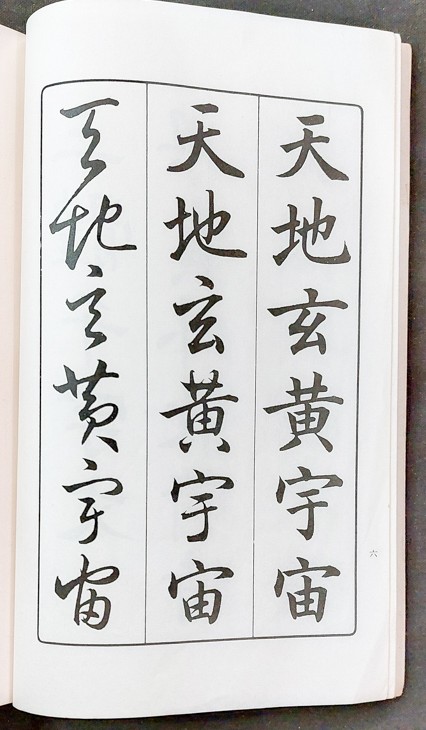 天地玄黄宇宙
天地玄黄宇宙
天地玄黄宇宙
六